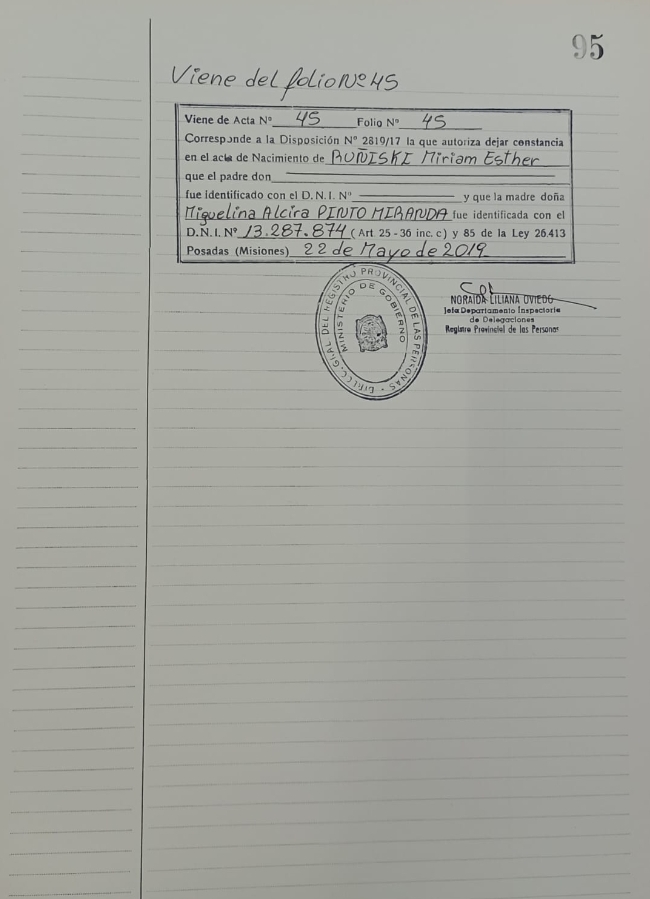 95
Viene del folio Nº 45
Viene de Acta Nº 45 Folio Nº 45
Corresponde a la Disposición Nº 2819/17 la que autoriza dejar constancia
en el acta de Nacimiento de RUÑISKI Miriam Esther
que el padre don
fue identificado con el D.N.I. Nº y que la madre doña
Miguelina Alcira PINTO MIRANDA fue identificada con el
D.N.I. Nº 13.287.874 (Art. 25 - 36 inc. c) y 85 de la Ley 26.413
Posadas (Misiones) 22 de Mayo de 2019
DIREC. GRAL. DEL REGISTRO PROVINCIAL DE LAS PERSONAS
MINISTERIO DE GOBIERNO
NORAIDA LILIANA OVIEDO
Jefa Departamento Inspectoria
de Delegaciones
Registro Provincial de las Personas